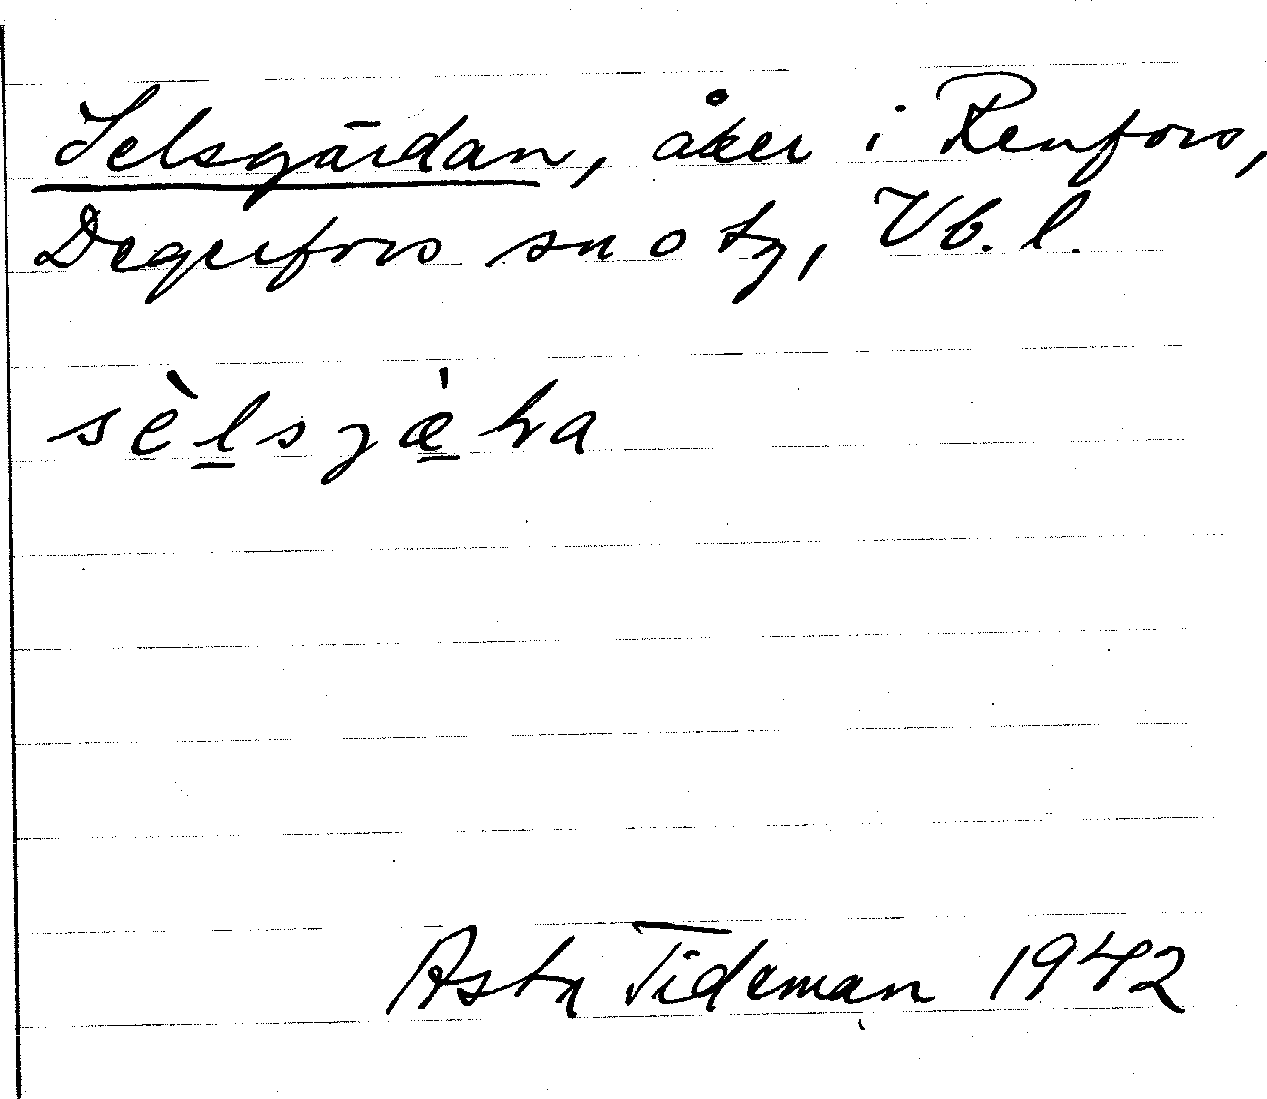 Selsgärdan, åker i Renfors,
Degerfors sn o tg, Vb. l.
sèl̲sjæ̲̀ɾa
Asta Tideman 1942